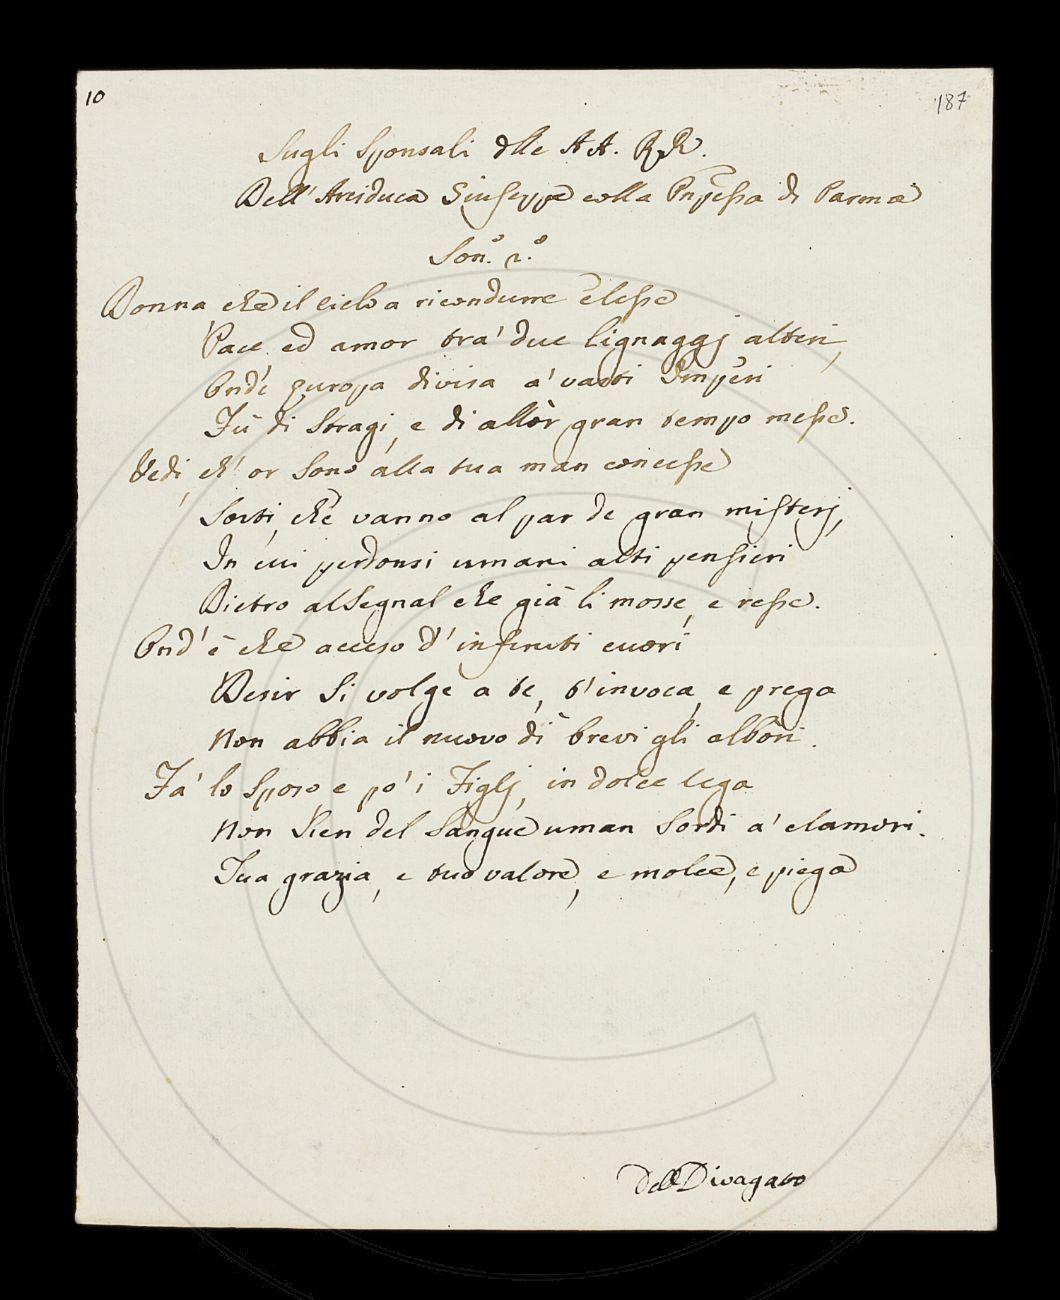 10
187
Sugli Sponsali dlle AA. RR.
Dell' Arciduca Giuseppe colla Pnpessa di Parma
Son.º 2.º
Donna che il cielo a ricondurre elesse
Pace ed amor tra' due lignaggj alteri,
Ond'è Europa divisa a' vasti Imperi
Fù di Stragi, e di allòr gran tempo messe.
Vedi, ch' or sono alla tua man concesse
Sorti, che vanno al par de gran misterj,
In cui perdonsi umani alti pensieri
Dietro al Segnal che già li mosse, e resse.
Ond' è che acceso d' infiniti cuori
Desir si volge a te, t'invoca, e prega
Non abbia il nuovo dì brevi gli albòri.
Fa' lo Sposo, e po' i Figlj, in dolce lega
Non Sien del Sangue uman Sordi a' clamori.
Tua grazia, e tuo valore, e molce, e piega
Del Divagato